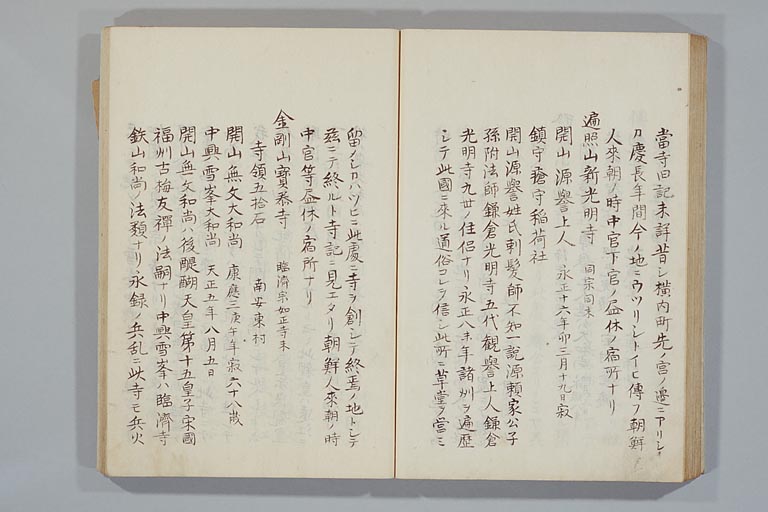 當寺旧記未詳昔シ横内町先ノ宮ノ邊ニアリシ
カ慶長年間今ノ地ニウツリシトイヒ傳フ朝鮮
人來朝ノ時中官下官ノ昼休ノ宿所ナリ
遍照山新光明寺 同宗同末
開山源譽上人 永正十六年卯三月十九日寂
鎮守瘡守稲荷社
開山源譽姓氏剃髪師不知一説源頼家公子
孫附法師鎌倉光明寺五代観譽上人鎌倉
光明寺九世ノ住侶ナリ永正八未年諸州ヲ遍歴
シテ此國ニ來ル道俗コレヲ信シ此所ニ草堂ヲ営ミ
留ノシカハツヒニ此處ニ寺ヲ創シテ終焉ノ地トシテ
茲ニテ終ルト寺記ニ見エタリ朝鮮人來朝ノ時
中官等昼休ノ宿所ナリ
金剛山寶泰寺 臨濟宗如正寺末
寺領五拾石 南安東村
開山無文大和尚 康應二庚午年寂六十八歳
中興雪峯大和尚 天正五年八月五日
開山無文和尚ハ後醍醐天皇第十五皇子宋國
福州古梅友禪ノ法嗣ナリ中興雪峯ハ臨濟寺
鉄山和尚ノ法類ナリ永録ノ兵乱ニ此寺モ兵火